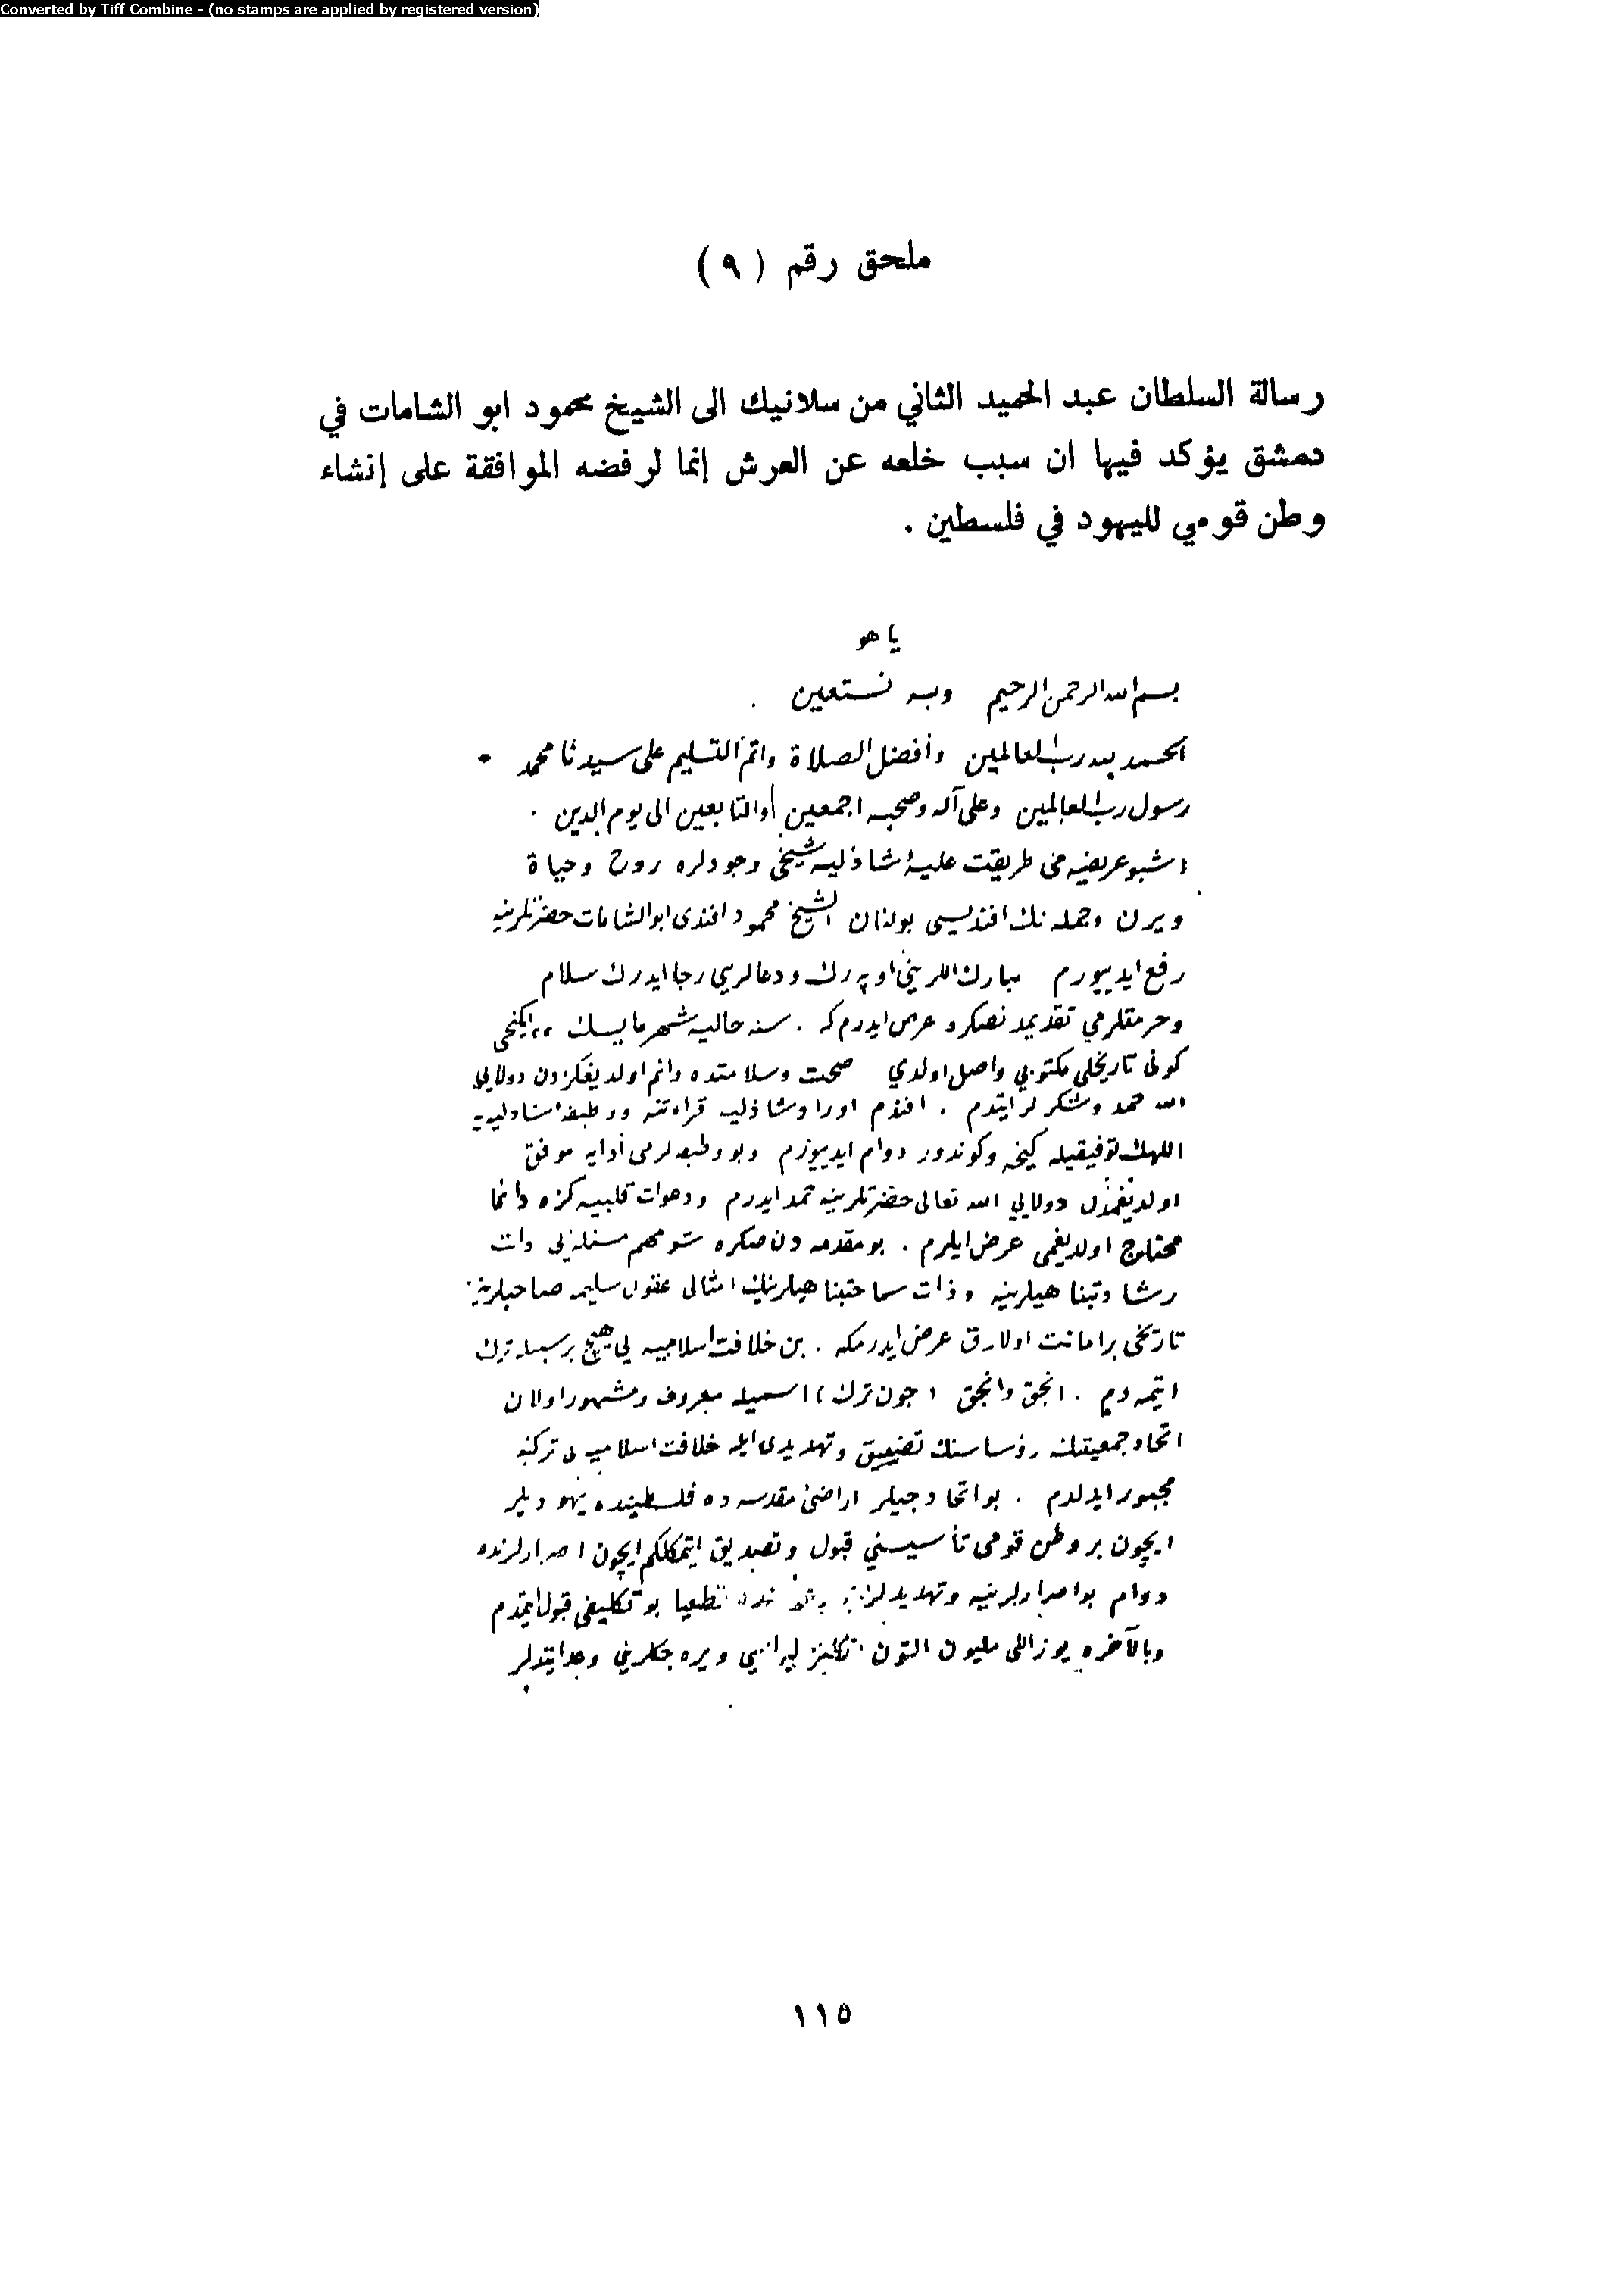 Converted by Tiff Combine - (no stamps are applied by registered version)
ملحق رقم ( ٩ )
رسالة السلطان عبد الحميد الثاني من سلانيك الى الشيخ محمود ابو الشامات في
دمشق يؤكد فيها ان سبب خلعه عن العرش إنما لرفضه الموافقة على إنشاء
وطن قومي لليهود في فلسطين .
يا هو
بسم الله الرحمن الرحيم وبه نستعين .
الحمد لله رب العالمين وأفضل الصلاة واتم التسليم على سيدنا محمد
رسول رب العالمين وعلى آله وصحبه اجمعين والتابعين الى يوم الدين .
اشبو عريضه مى طريقت عليۀ شاذليه شيخى وجودلره روح وحياة
ويرن وجمله نك افنديسى بولنان الشيخ محمود افندى ابو الشامات حضرتلرينه
رفع ايدييورم مبارك اللرينى اوپه رك ودعالرينى رجا ايدرك سلام
وحرمتلرمي تقديمدنصكره عرض ايدرم كه . سنه حاليه شهر مايسك ايكنجى
كونى تاريخلى مكتوبى واصل اولدي صحت وسلامتده دائم اولديغكزدن دولايى
الله حمد وشكرلر ايتدم . افندم اوراد شاذليه قراءتنه ووظيفه شاذليه يه
اللهك توفيقيله كيجه وكوندوز دوام ايدييورم وبو وظيفه لرمى أدايه موفق
اولديغمدن دولايى الله تعالى حضرتلرينه حمد ايدرم ودعوات قلبيه كزه دائما
محتاج اولديغمى عرض ايلرم . بو مقدمه دن صكره شو مهم مسئله يى ذات
رشادتپناهيلرينه وذات سماحتپناهيلرينك امثالى عقول سليمه صاحبلرينه
تاريخى بر امانت اولارق عرض ايدرمكه . بن خلافت اسلاميه يى هيچ بر سببله ترك
ايتمه دم . انجق وانجق ( جون ترك ) اسميله معروف ومشهور اولان
اتحاد جمعيتنك رؤساسنك تضييق وتهديدى ايله خلافت اسلاميه يى تركه
مجبور ايدلدم . بو اتحادجيلر اراضئ مقدسه ده فلسطينده يهوديلر
ايچون بر وطن قومى تأسيسنى قبول وتصديق ايتمكلكم ايچون اصرارلرنده
دوام بو اصرارلرينه وتهديدلرينه قطعيا بو تكليفى قبول ايتمدم
وبالآخره يوز اللى مليون التون انكليز ليراسى ويره جكلرينى وعد ايتديلر
١١٥